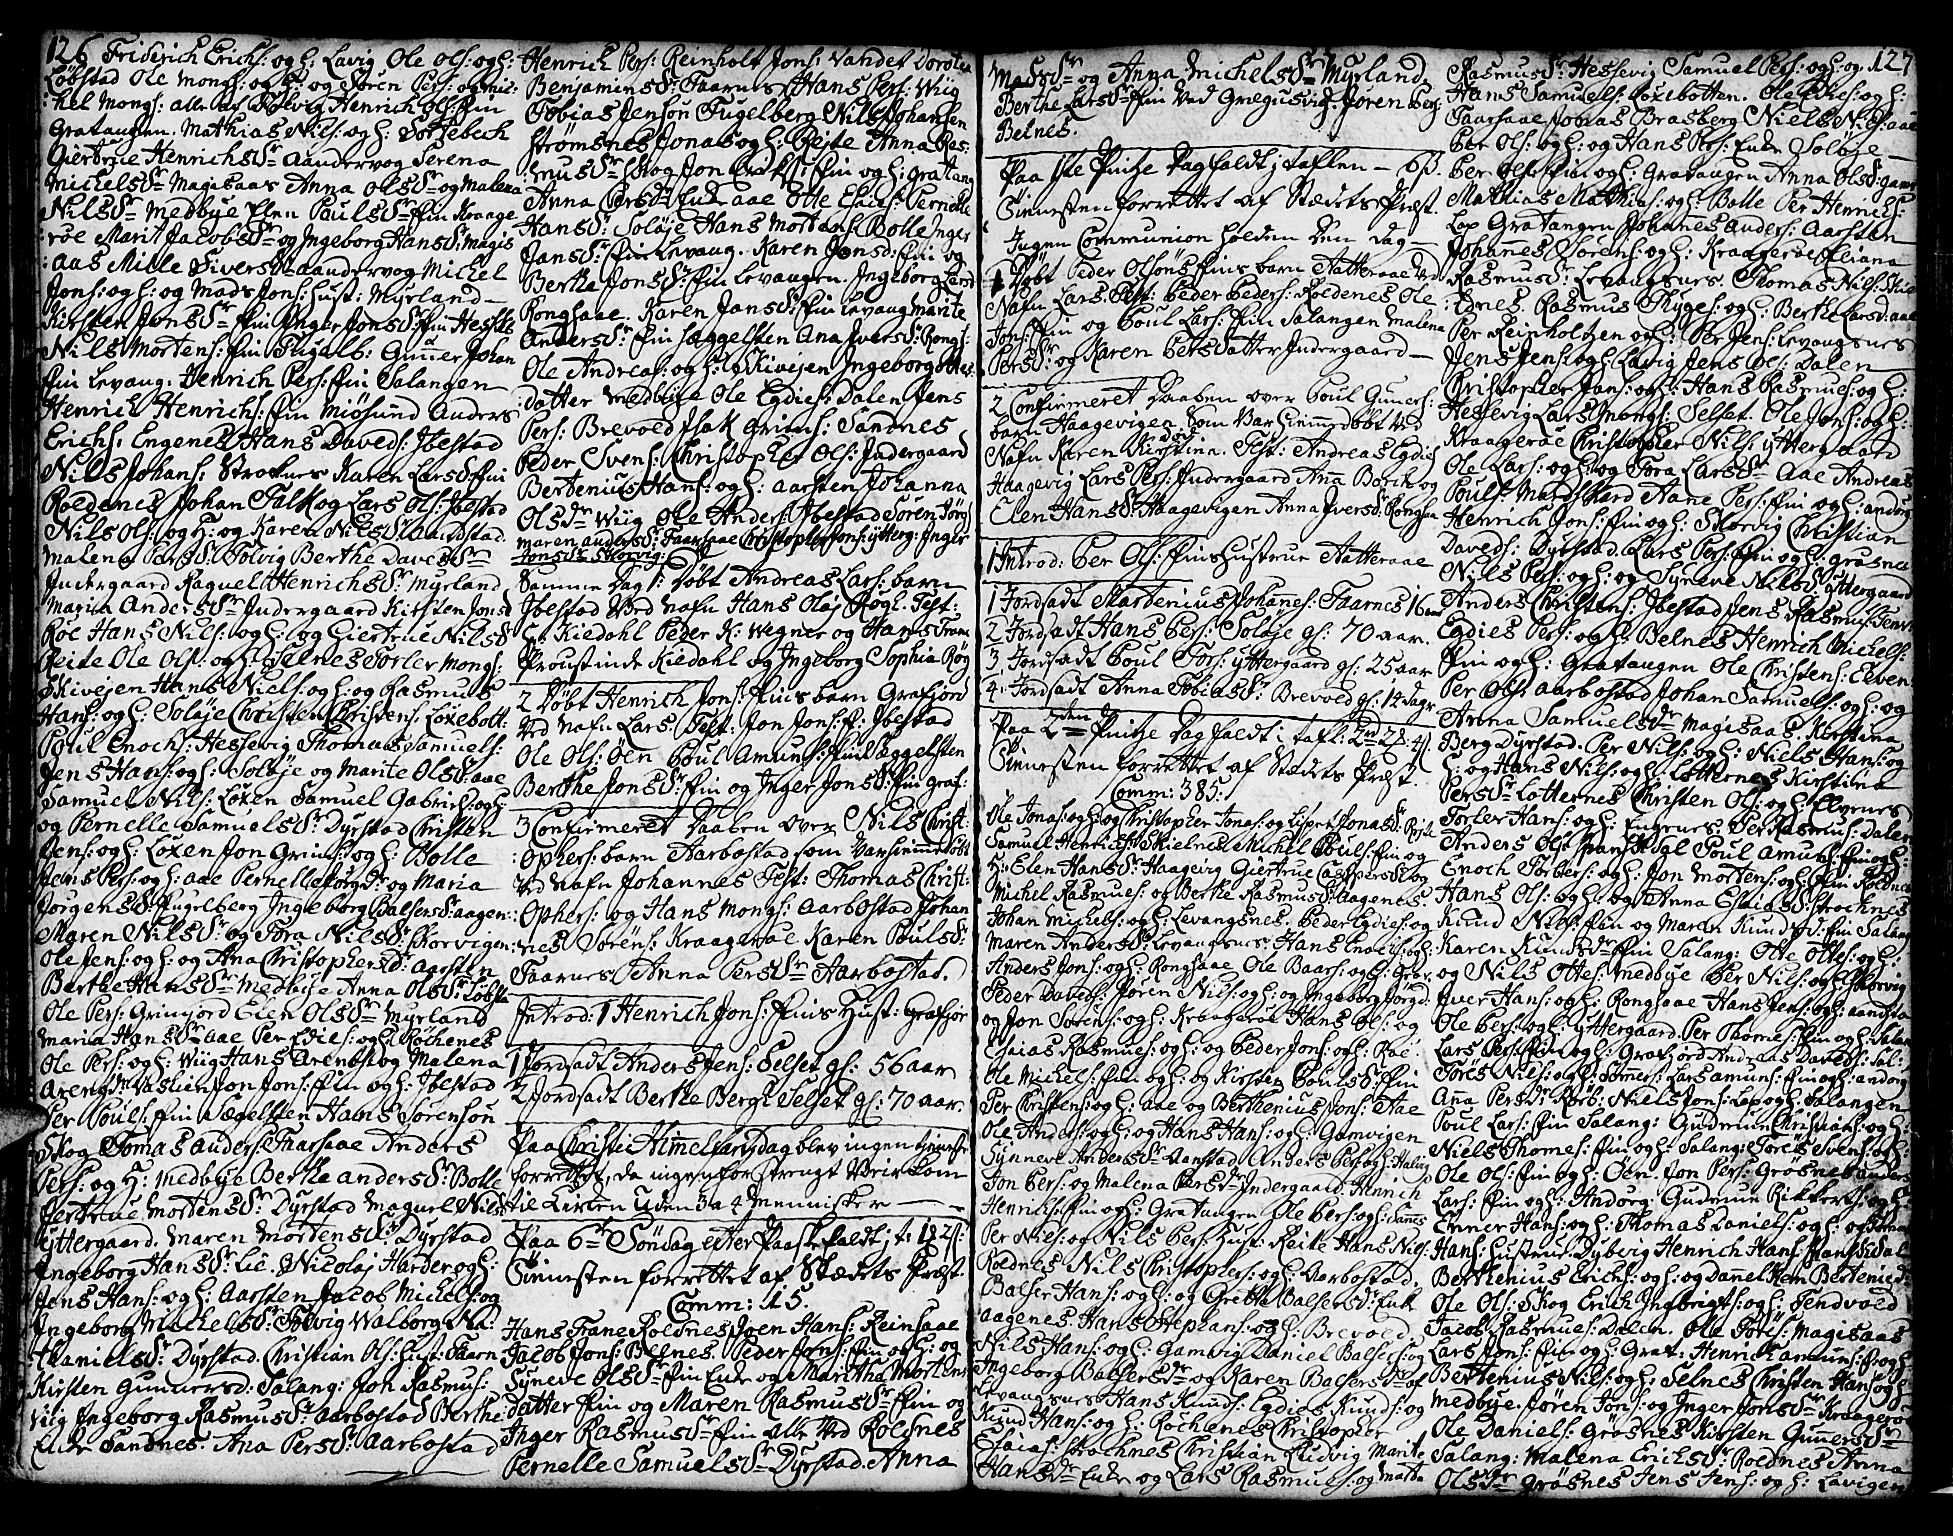 126 Friderich Erichs: og h: Lavig Ole Ols: og h:
Løbstad Ole Mongs: og h: og Sören Pers: og Mic-
hel Mongs: alle af Tolvig Henrich Ols: fin
Gratangen. Mathias Nils: og h: Sörsebech
Giertrue Henrichsdr Aandervog Serena
Michelsdr Magisaas Anna Olsdr og Malena
Nilsdr Medbye Elen Poulsdr fin Kraage
röe Marit Jacobsdr og Ingeborg Hansdr Magis
:aas Mille Siversdr Aandervog Michel
Jons: og h: og Mads Jons: Hust: Myrland
Kirsten Jonsdr fin Inger Jonsdr fin Hesk
Nils Mortens: fin Fugelb: Gunner Johan
fin Levang. Henrich Pers: fin Salangen
Henrich Henrichs: fin Miösund Anders
Erichs: Engenes Hans Daveds: Ibestad
Nils Johans: Straknes Karen Larsdr fin
Roldenes Johan Falk og Lars Ols: Ibestad
Nils Ols: og h: og Karen Nilsdr Aandstad.
Malena Persdr Tolvig Berthe Davesdr
Indergaard Raquel Henrichsdr Myrland
Marita Andersdr Indergaard Kirsten Jonsd
Röe Hans Nils: og h: og Giertrue Nilsd
Reite Ole Ols: og h: Selnes Torler Mongs:
Skivejen Hans Niels: og h: og Rasmus
Hans: og h: Soløje Christen Christens: Löxebott:
Poul Enochs: Hessevig Thomas Samuels:
Jens Hans: og h: Soløje og Marite Olsdr Aae
Samuel Nils: Löxen Samuel Gabriels: og h:
og Pernelle Samuelsdr Dyrstad Christen
Jens: og h: Löxen Jon Grims: og h: Bolle
Jens Pers: og h: Aae Pernelle og Maria
Jörgensdr Fugelberg Ingeborg Balsersdr Aagen:
Maren Nilsdr og Tora Nilsdr Skorvigen:
Ole Jens: og h: og Ana Christophersdr Aarsten
Berthe Hansdr Medbye Anna Olsdr Løbsta
Ole Pers: Grimfjord Elen Olsdr Myrland
Maria Hansdr Aae Per Edies: og h: Röchenes
Ole Pers: og h: Wiig Hans Arenbs og Malena
Jon Jons: fin og h: Ibestad
Per Pouls: fin Sægelsten Hans Sörensön
Skog Tomas Anders: Faarsaae Anders
Pers: og h: Medbye Berthe Andersdr Bolle
Jertrue Mortensdr Dyrstad Maquel Nils
Yttergaard. Maren Mortensdr Dyrstad
Ingeborg Hansdr Lie. Nicolaj Harder og h:
Jens Hans: og h: Aarsten Jacob Michels: og
Ingeborg Michelsdr Tolvig Walborg
Danielsdr Dyrstad. Christian Ols: Hust: Faarn
Kirsten Gunnersd: Salang: Jon Rasmus:
Viig Ingeborg Rasmusdr Aarbostad Berthe
Enke Sandnes. Ana Persdr Aarbostad
Henrich Pers: Reinholt Jons: Vandet Dorotea
Benjaminsdr Faarnes Hans Pers: Wiig
Tobias Jensön Fugelberg Nils Johansen
Strömsnes Jonas og h: Reite Anna Ras:
:musdr Skog Jon Eriks: fin og h: Gratang
Anna Persdr Enke Aae Otte Esaies: Pernelle
Hansdr Soløje Hans Mortens: Bolle Inger
Jansdr fin Levang. Karen Jonsd: fin og
Berthe Jonsdr fin Levangen. Ingeborg Larsd
Rongsaae. Karen Jansdr fin Levang Marite
Andersdr fin Sæggelsten Ana Iversdr Rongs:
Ole Andreas: og h: Skivejen Ingeborg Ottes
:datter Medbye Ole Egdies: Dalen Jens
Pers: Brevold Isak Grims: Sandnes
Peder Svens: Christopher Ols: Indergaard
Bertenius Hans: og h: Aarsten Johanna
Olsdr Wiig Ole Anders: Ibestad Sören Jörg
Maren Andersdr Faarsaae Christopher Jons: Ytterg: Inger
Jonsdr Skorvig:
Samme Dag 1: Döbt Andreas Lars: barn
Ibestad Ved Nafn Hans Oläj Högl. Test:
Hr Kiedahl Peder K: Wegner og Hans Trane
Proustinde Kiedahl og Ingeborg Sophia Rög
2 Döbt Henrich Jons: fins barn Grafjord
Ved Nafn Lars. Test: Jon Jons: f: Ibestad
Ole Ols: Öen Poul Amuns: fin Sæggelsten
Berthe Jonsdr fin og Inger Jonsdr fin Graf:
3 Confirmeret Daaben over Nils Christ:
:ophers: barn Aarbostad som var hiemmedöbt
Ved Nafn Johannes Test: Thomas Christ:
:ophers: og Hans Mongs: Aarbostad Johan
nes Sörens: Kraageröe Karen Poulsdr
Faarnes Anna Persdr Aarbostad.
Introd: 1 Henrich Jons: fins Hust: Grafjor
1 Jordsadt Anders Jens: Selset gl: 56 aar
2 Jordsadt Berthe Bergs Selset gl: 70 aar.
Paa Christi Himmelfartsdag blev ingen tieneste
forrettet, da ingen for strengt Veir kom
til Kirken uden 3 a 4 Mennisker
Paa 6te Söndag efter Paaske faldt j t: 18 2/:
Tienesten forrettet af Stædets Præst.
Comm: 15.
Hans Trane Roldnes Joen Hans: Reinsaae
Jacob Jons: Belnes. Peder Jons: fin og h: og
Syneve Olsdr fin Enke og Maritha Mortens
datter fin og Maren Rasmusdr fin og
Inger Rasmusdr fin alle Ved Roldnes
Pernelle Samuelsdr Dyrstad. Anna
Madsdr og Anna Michelsdr Myrland.
Berthe Larsdr fin Ved Gregusvig. Jören Pers:
Belnes.
Paa 1ste Pintze Dag faldt j taflen 6 ß.
Tienesten forrettet af Stædets Præst.
Ingen Communion holden den dag
1 Döbt Peder Olsöns fins barn Aatteraae Ved
Nafn Lars. Test: Peder Peders: Roldenes Ole
Jons: fin og Poul Lars: fin Salangen Malena
Persdr og Karen Persdatter Indergaard
2 Confirmeret Daaben over Poul Guners:
barn Haagevigen som Var hiemmedöbt Ved
Nafn Karen Kirstina. Test: Andreas Egdies
Haagevig Lars Pers: Indergaard Ana Borch og
Elen Hansdr Haagevigen Anna Iversdr Rongsaa
1 Introd: Per Ols: fins hustrue Aatteraae
1 Jordsadt Martenius Johannes: Faarnes 16
2 Jordsadt Hans Pers: Soløje gl: 70 aar.
3 Jordsadt Poul Tors: Yttergaard gl: 25 aar
4. Jordsadt Anna Tobiasdr Brevold gl: 14 dage
Paa 2den Pintze Dag faldt i tafl:
Tienesten forrettet af Stædets Præst.
Comm: 385:
Ole Jonas: og h: og Christopher Jonas: og Lisbet Jonasdr Rejte
Samuel Henrichs: Skielnes Michel Pouls: fin og
H: Elen Hansdr Haagevig Giertrue Caspersdr og
Michel Rasmus: og Berthe Rasmusdr Aagenes.
Johan Michels: og h: Levangsnes. Peder Egdies: og
Maren Andersdr Levangsnes. Hans Enochs: og h:
Anders Jons: og h: Rongsaae Ole Baars: og h: Grov
Peder Daveds: Jören Nils: og h: og Ingeborg Jörgd:
og Jon Sörens: og h: Kraageröe Hans Ols: og
Esaias Rasmus: og h: og Peder Jons: og h: Roe
Ole Michels: fin og h: og Kirsten Poulsdr fin
Per Christens: og h: Aae og Berthenius Jons: Aae
Ole Anders: og h: og Hans Hans: og h: Gamvigen
Synneve Andersdr Aanstad Anders Pers: og h: Haling
Jon Pers: og Malena Persdr Indergaard. Henrich
Henrichs: fin og h: Gratangen Ole Pers: og h:
Per Niels: og Nils Pers: Hust: Reite Hans Nils:
Roldnes Nils Christophers: og h: Aarbostad.
Balser Hans: og h: og Grethe Balsersdr Enke
Aagenes. Hans Stephans: og h: Brevold.
Nils Hans: og h: Gamvig Daniel Balsers: og
Ingeborg Balsersdr og Karen Balsersdr af
Levangsnes Hans Knuds: Egdies Knuds: og
Knud Hans: og h: Röchenes Christopher
Esaias: Strochnes Christian Ludvig Marite
Hansdr Enke og Lars Rasmus: og Marta
Rasmusdr Hessevig Samuel Pers: og h: og. 127
Hans Samuels: Löxebotten. Ole Edies: og h:
Faarsaae Jonas Brasberg Niels Nils: Aae
Per Ols: og h: og Hans Pers: Enke Soløje
Per Ols: fin og h: Gratangen Anna Olsdr Gamv
Mathias Mathias: og h: Bolle Per Henrichs:
Lop Gratangen Johannes Anders: Aarsten
Johannes Sörens: og h: Kraageröe Eliana
Rasmusdr Levangsnes. Thomas Nils: Skie
:lnes. Rasmus Thyges: og h: Berthe Larsd: Aae
Per Reinholtzen og h: Per Jens: Levangsnes
Jens Jens: og h: Lavig Jens Ols: Dalen
Christopher Jans: og h: Hans Rasmus: og h:
Hessevig Lars Mongs: Selset. Ole Jons: og h:
Kraageröe Christopher Nils: Yttergaard
Ole Lars: og h: og Tora Larsdr Aae Andreas
Pouls: Mardskard Aane Pers: fin og h: Andorg
Henrich Jons: fin og h: Skorvig Christian
Daveds: Dyrstad. Lars Pers: fin og h: Grasnes
Nils Pers: og h: og Syneve Nilsdr Yttergaard
Anders Christens: Ibestad Jens Rasmus: Tenv
Egdies Pers: og h: Belnes Henrich Michels:
fin og h: Gratangen Ole Christens: Elven
Per Ols: Aarbostad Johan Samuels: og h: og
Anna Samuelsdr Magisaas. Kirstina
Berg Dyrstad. Per Nils: og h: Niels Hans: og
h: og Hans Nils: og h: Lotternes Kirstina
Persdr Lotternes Christen Ols: og h: Elvenes
Torler Hans: og h: Engenes. Per Rasmus: Dalen
Anders Ols: Spansdal Poul Amuns: fin og h:
Enoch Torbers: og h: Jon Mortens: og h: fin Roldnes
Hans Ols: og h: og Anna Esaiasdr Strochnes
Knud Nils: fin og Maren Knudsdr fin Salang
Karen Knudsdr fin Salang: Otte Ottes: og h:
og Nils Ottes: Medbye Per Nils: og h: Skorvig
Iver Hans: og h: Rongsaae Hans Jens: og h: Aandsta
Ole Pers: og h: Yttergaard. Per Thomes: fin og h: Salan
Lars Pers: fin og h: Grafjord Andreas Daveds: Sal:
Tores Nils: og h: Sommers: Lars Amuns: fin og h: Andorg
Ana Persdr Rörb: Niels Jons: Lop og h: Salangen
Poul Lars: fin Salang: Gudmun Christians: og h:
Niels Thomes: fin og h: Salang: Torës Svens: og h:
Ole Ols: fin og h: Oen. Jon Pers: Grosnes Anders
Lars: fin og h: Andorg. Gudmun Rikkerts: og h:
Enner Hans: og h: Thomas Daniels: og h: og Tomas
Hans: hustrue Dybvig Henrich Hans: Spansdal
Berthenius Erichs: og h: og Dannel Kem Berteniusd:
Ole Ols: Skog Erich Ingbrigts: og h: Tendvold
Jacob Rasmus: Dalen. Ole Törës: Magisaas
Lars Jons: fin og h: Grat: Henrich Amuns: f: og h:
Bertenius Nils: og h: Selnes Christen Hans: og h:
Medbye. Jören Jons: og Inger Jonsdr Kraageröe
Ole Daniels: Grosnes Kirsten Gunnersdr
Salang: Malena Erichsdr Roldnes Anna
Olsdr Grösnes Jens Jens: og h: Lavigen